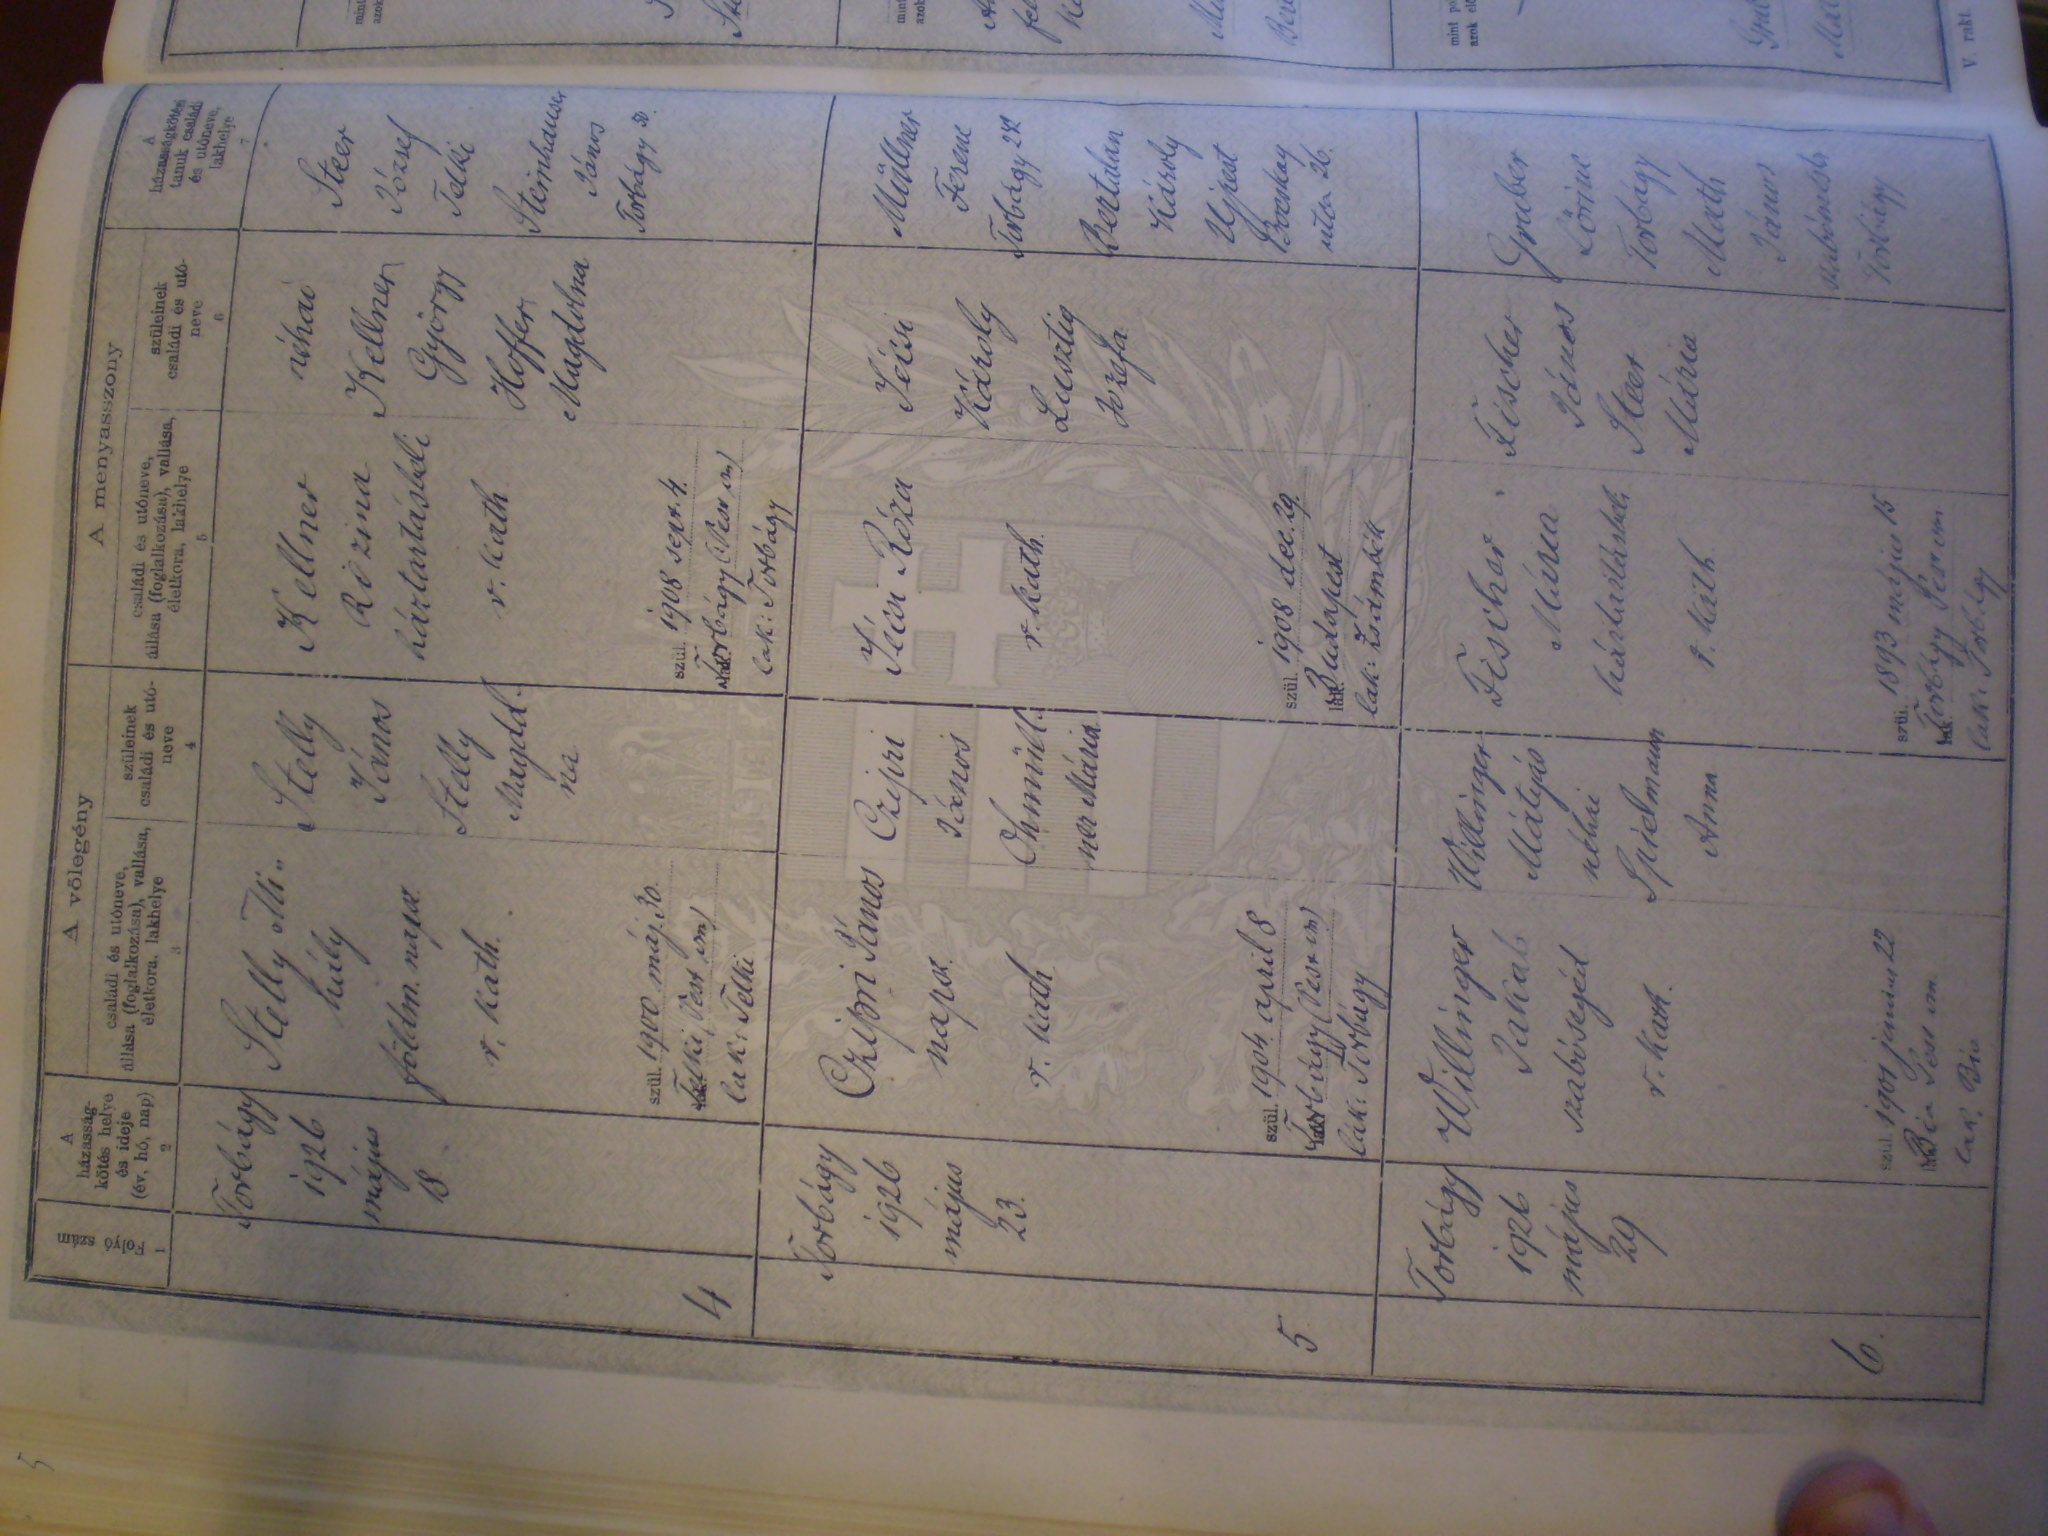 A
házasság-
kötés helye
és ideje
(év, hó, nap)
2
Folyó szám
1
A vőlegény
családi és utóneve,
állása (foglalkozása), vallása,
életkora, lakhelye
3
szüleinek
családi és utó-
neve
4
A menyasszony
családi és utóneve,
állása (foglalkozása), vallása,
életkora, lakhelye
5
szüleinek
családi és utó-
neve
6
A
házasságkötési
tanuk családi
és utóneve,
lakhelye
7
4
Torbágy
1926
május
18
Stelly Mi-
hály
földm. napsz.
r. kath.
szül. 1900 máj. 30.
Telki (Pest vm)
lak: Telki
Stelly
János
Stelly
Magdol-
na
Kellner
Rozina
háztartásbeli
r. kath.
szül. 1908 sept. 4.
Torbágy (Pest vm)
lak: Torbágy
néhai
Kellner
György
Hoffer
Magdolna
Steer
József
Telki
Steinhauser
János
Torbágy
5
Torbágy
1926
május
23.
Czipri János
napsz.
r. kath
szül. 1904 április 8
Torbágy (Pest vm)
lak: Torbágy
Czipri
János
ner Mária
Róza
r. kath.
szül. 1908 dec. 29.
Budapest
lak: Zsámbék
Károly
Lusztig
Jozefa
Müllner
Ferenc
Torbágy
Bertalan
Károly
Ujpest
Bocskay
utca 26.
6.
Torbágy
1926
május
29
Willinger
Jakab
szabósegéd
r. kath.
szül. 1901 junius 22
Bia Pest vm
lak. Bia
Willinger
Mátyás
néhai
Spielmann
Anna
Fischer
Mária
háztartásbeli
r. kath
szül. 1893 május 15
Torbágy Pest vm.
lak: Torbágy
Fischer
János
Steer
Mária
Gruber
Lőrinc
Torbágy
Math
János
szabómester
Torbágy
V. rakt.
5